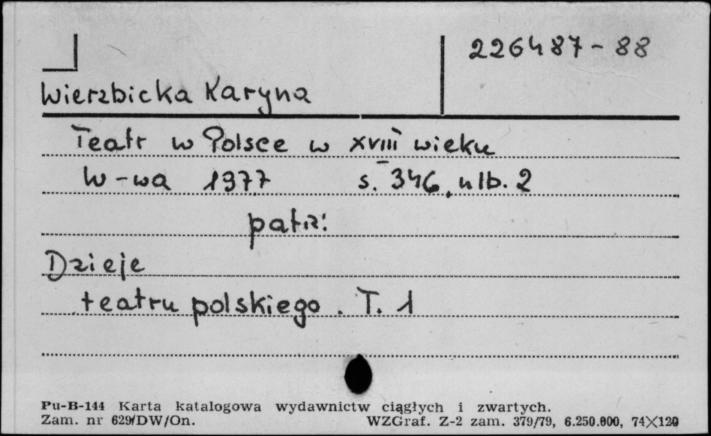 226487-88
Wierzbicka Karyna
Teatr w Polsce w XVIII wieku
W-wa 1977 s. 346, nlb. 2
patrz:
Dzieje
teatru polskiego. T. 1
Pu-B-144 Karta katalogowa wydawnictw ciągłych i zwartych.
Zam. nr 629/DW/On. WZGraf. Z-2 zam. 379/79, 6.250.000, 74×120